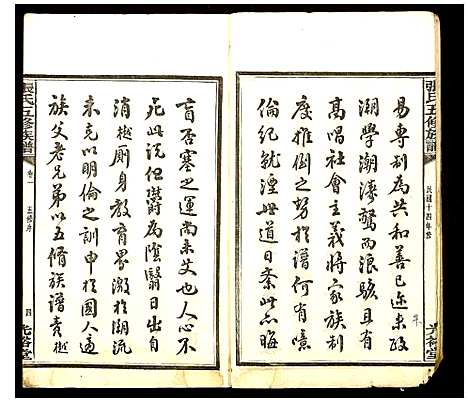 張氏五修族譜
民國十四年修
光裕堂
易專制為共和善已迩来政
潮學潮湊驚而浪駭且有
高唱社會主義將家族制
度推倒之努於譜何有噫
倫紀就湮世道日紊此亦晦
盲否塞之運尚未艾也人心不
死此說但爵為陰翳日出自
消樾厠身教育界激於潮流
未克以明倫之訓申於國人適
族父老兄弟以五脩族譜責樾
張氏五修族譜
卷一
五修序
四
光裕堂